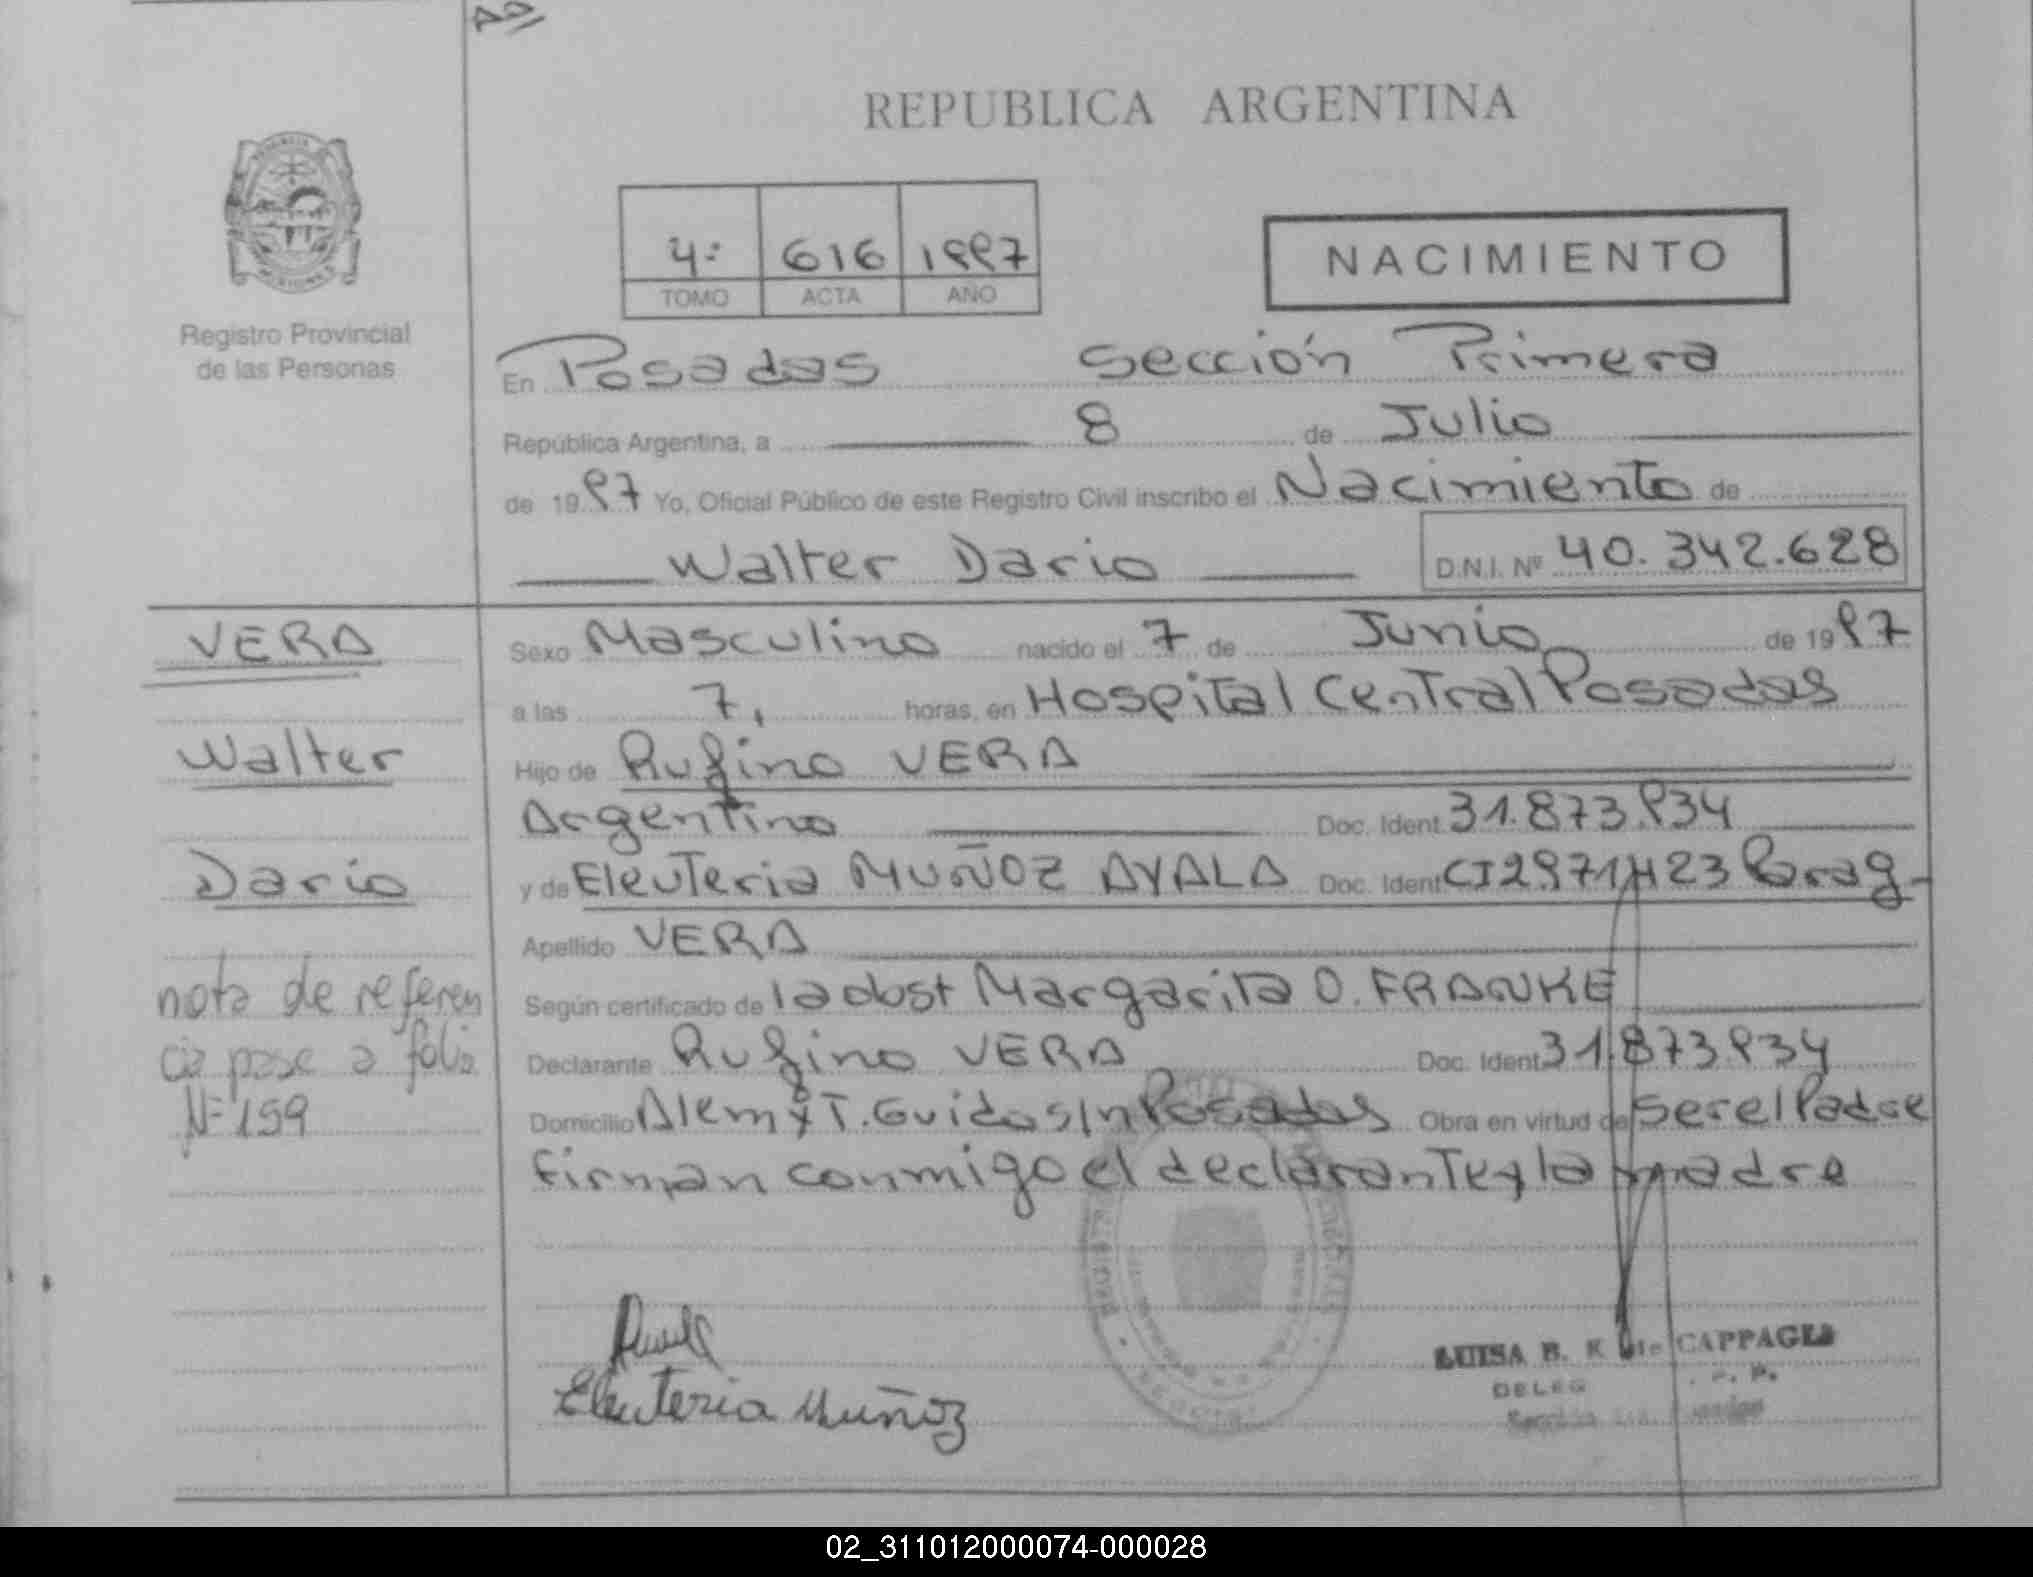 REPUBLICA ARGENTINA
4º 616 1997
TOMO ACTA AÑO
NACIMIENTO
Registro Provincial
de las Personas
En Posadas Sección Primera
República Argentina, a 8 de Julio
de 1997 Yo, Oficial Público de este Registro Civil inscribo el Nacimiento de
Walter Dario D.N.I. Nº 40.342.628
VERA
Walter
Dario
nota de referen
cia pase a folio
Nº 159
Sexo Masculino nacido el 7 de Junio de 1997
a las 7, horas, en Hospital Central Posadas
Hijo de Rufino VERA
Argentino Doc. Ident. 31.873.934
y de Eleuteria MUÑOZ AYALA Doc. Ident CI 2971423
Apellido VERA
Según certificado de la obst Margarita O. FRANKE
Declarante Rufino VERA Doc. Ident 31.873.934
Domicilio Alem y T. Guido s/n Posadas Obra en virtud de ser el Padre
Firman conmigo el declarante y la madre
Eleuteria Muñoz
LUISA B. K de CAPPAGLI
DELEG
02_311012000074-000028